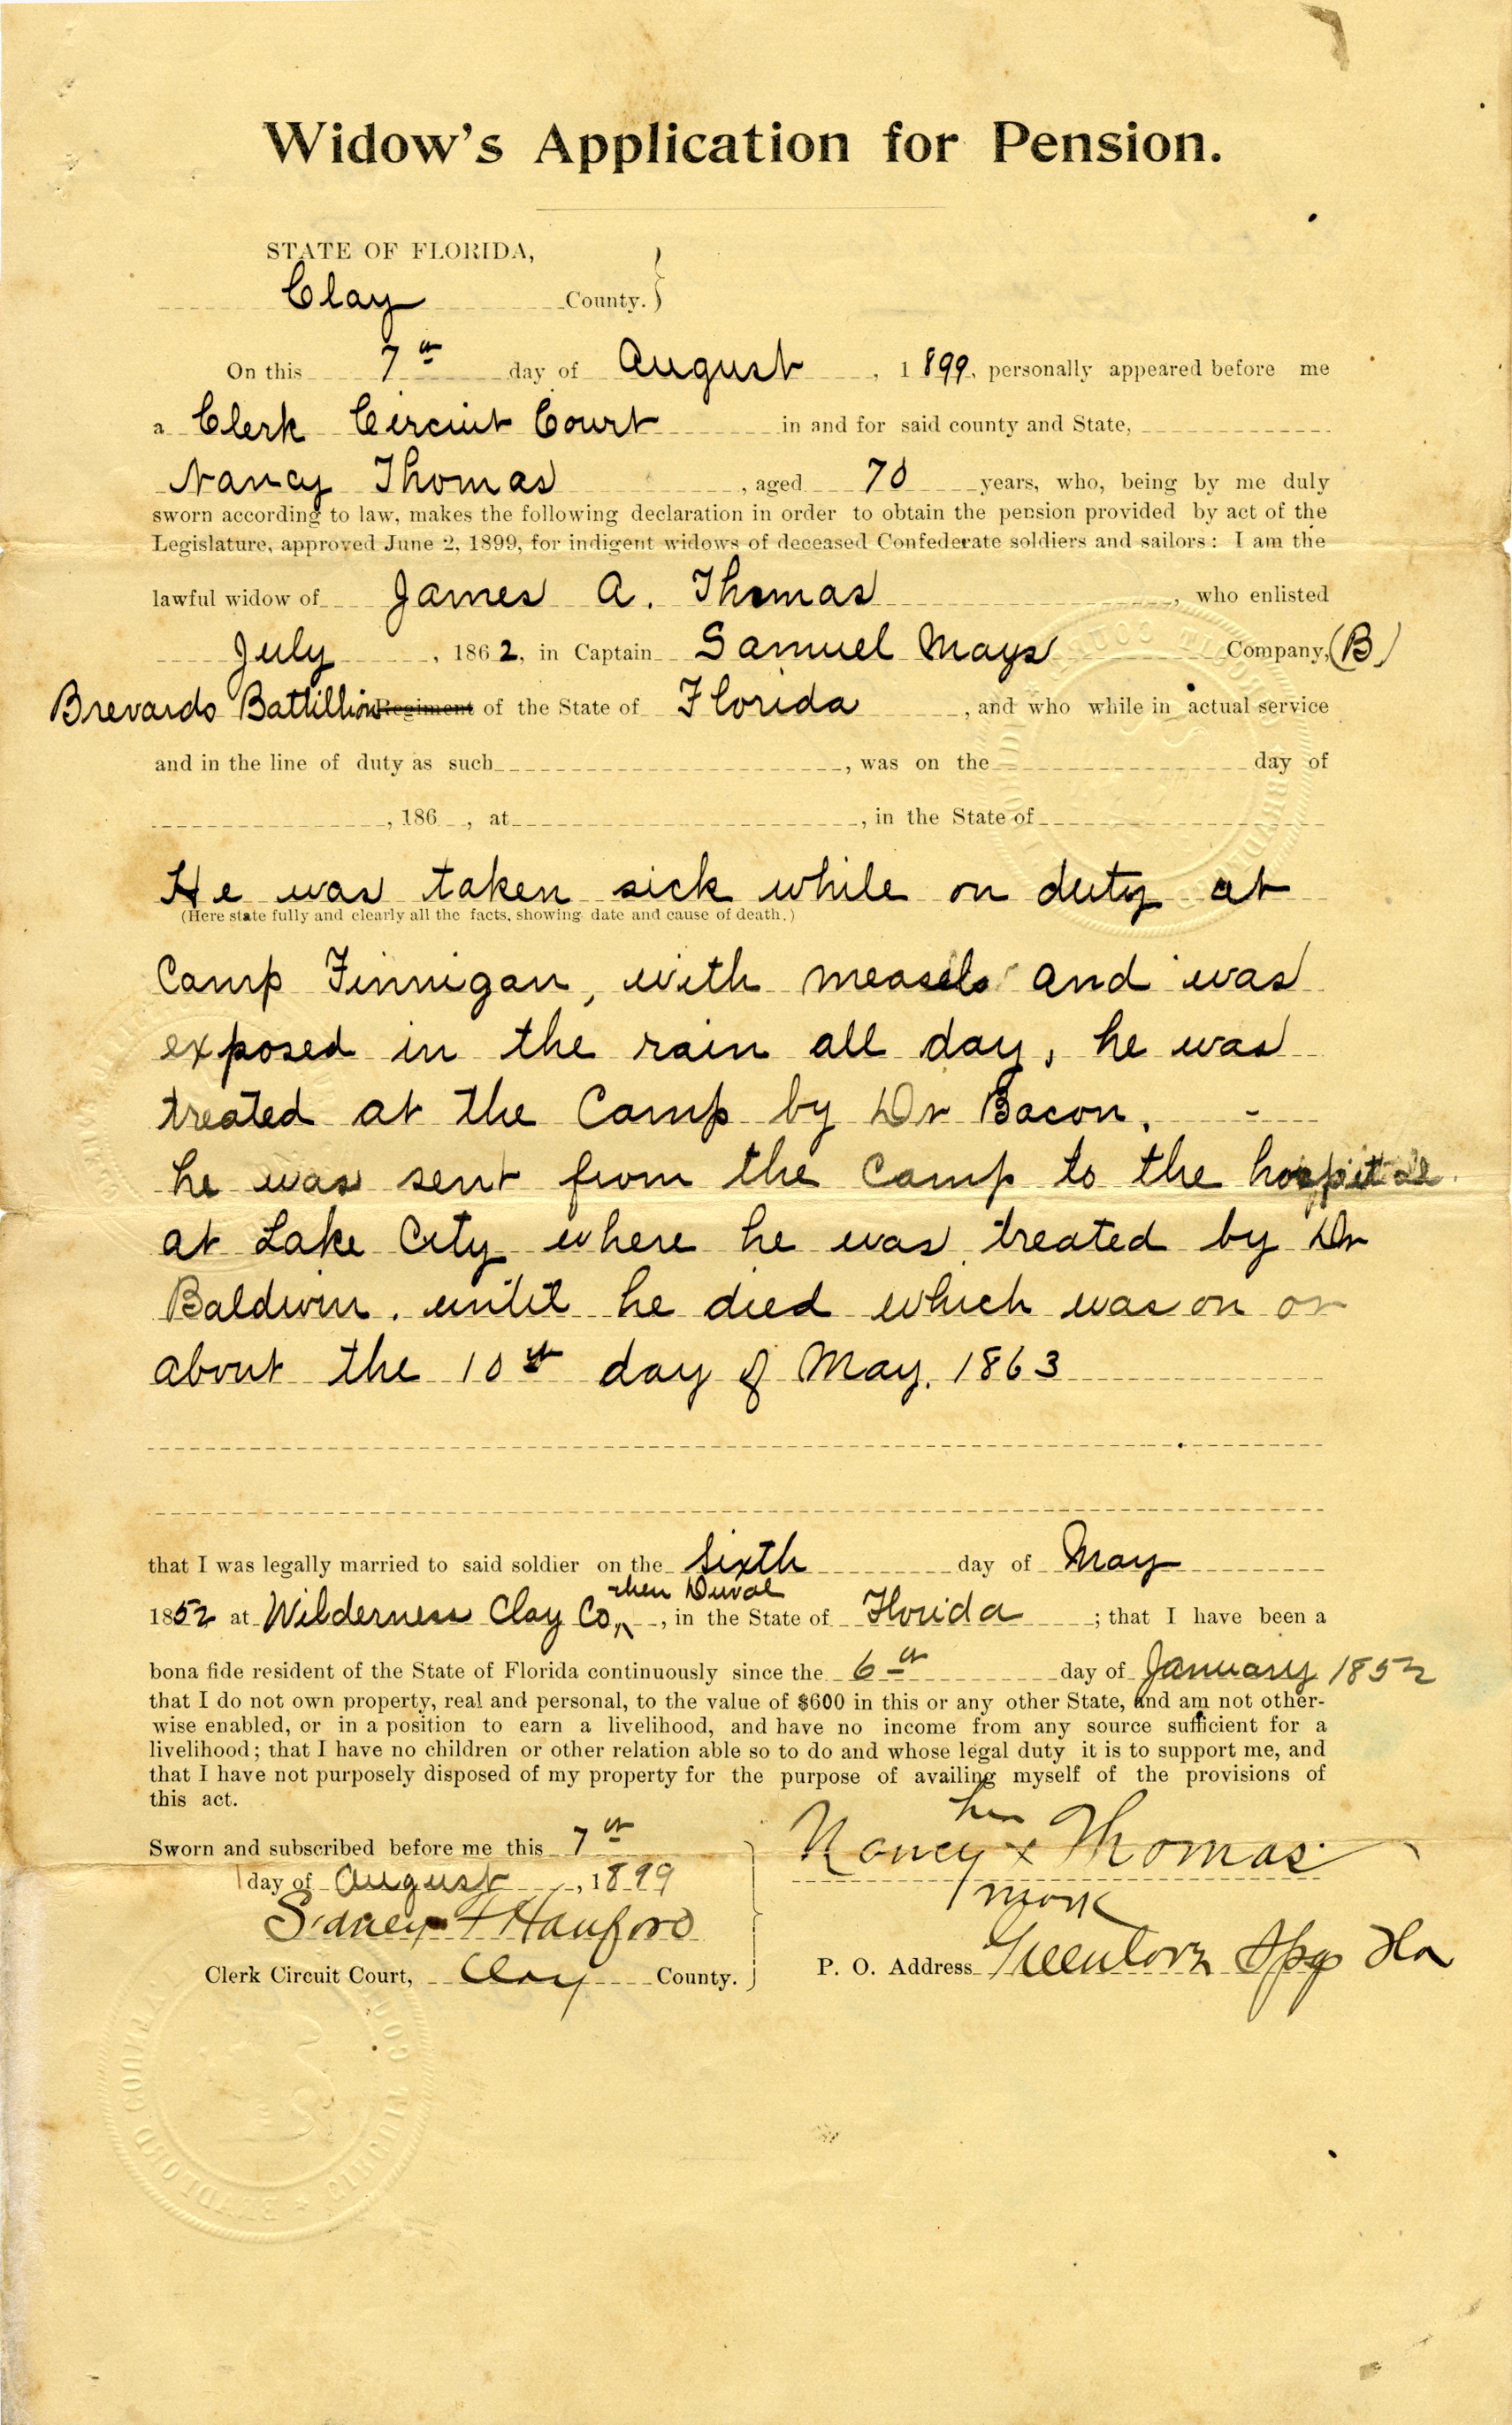 Widow's Application for Pension.
STATE OF FLORIDA,
Clay County.
On this 7th day of August, 1899, personally appeared before me
a Clerk Circuit Court in and for said county and State,
Nancy Thomas, aged 70 years, who, being by me duly
sworn according to law, makes the following declaration in order to obtain the pension provided by act of the
Legislature, approved June 2, 1899, for indigent widows of deceased Confederate soldiers and sailors: I am the
lawful widow of James A. Thomas, who enlisted
July, 1862, in Captain Samuel Mays Company, (B)
Brevards Battillion Regiment of the State of Florida, and who while in actual service
and in the line of duty as such, was on the day of
, 186 , at , in the State of
He was taken sick while on duty at
(Here state fully and clearly all the facts, showing date and cause of death.)
Camp Finnigan, with measels and was
exposed in the rain all day, he was
treated at the Camp by Dr Bacon.
he was sent from the Camp to the hospital
at Lake City where he was treated by Dr
Baldwin. until he died which was on or
about the 10th day of May. 1863
that I was legally married to said soldier on the sixth day of May
then Duval
1852 at Wilderness Clay Co, in the State of Florida; that I have been a
bona fide resident of the State of Florida continuously since the 6th day of January 1852
that I do not own property, real and personal, to the value of $600 in this or any other State, and am not other-
wise enabled, or in a position to earn a livelihood, and have no income from any source sufficient for a
livelihood; that I have no children or other relation able so to do and whose legal duty it is to support me, and
that I have not purposely disposed of my property for the purpose of availing myself of the provisions of
this act.
Sworn and subscribed before me this 7th
day of August, 1899
Sidney Hanford
Clerk Circuit Court, Clay County.
her
Nancy x Thomas
mark
P. O. Address Green Cove Spgs Fla